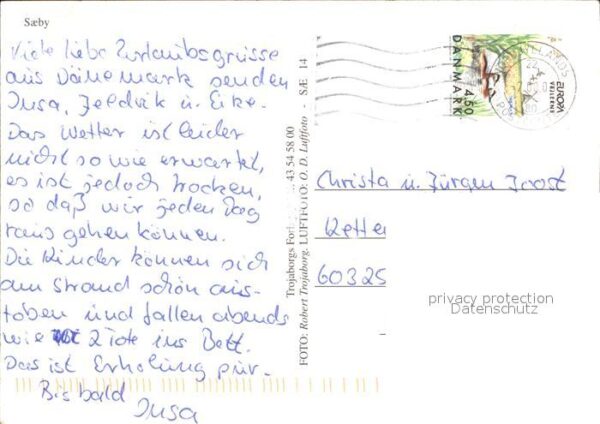 Sæby
Viele liebe Urlaubsgrüsse
aus Dänemark senden
Insa, Feedrik u. Eike.
Das Wetter ist leider
nicht so wie erwartet,
es ist jedoch trocken,
so daß wir jeden Tag
raus gehen können.
Die Kinder können sich
am Strand schön aus-
toben und fallen abends
wie 2 Tote ins Bett.
Das ist Erholung pur.
Bis bald
Insa
Trojaborgs Forl 43 54 58 00
FOTO: Robert Trojaborg. LUFTFOTO: O. D. Luftfoto - SÆ 14
DANMARK
4.50
EUROPA
Christa u. Jürgen Joost
Kette
60325
privacy protection
Datenschutz